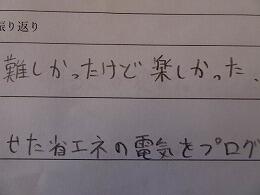 振り返り
難しかったけど楽しかった、
せた省エネの電気をプログ